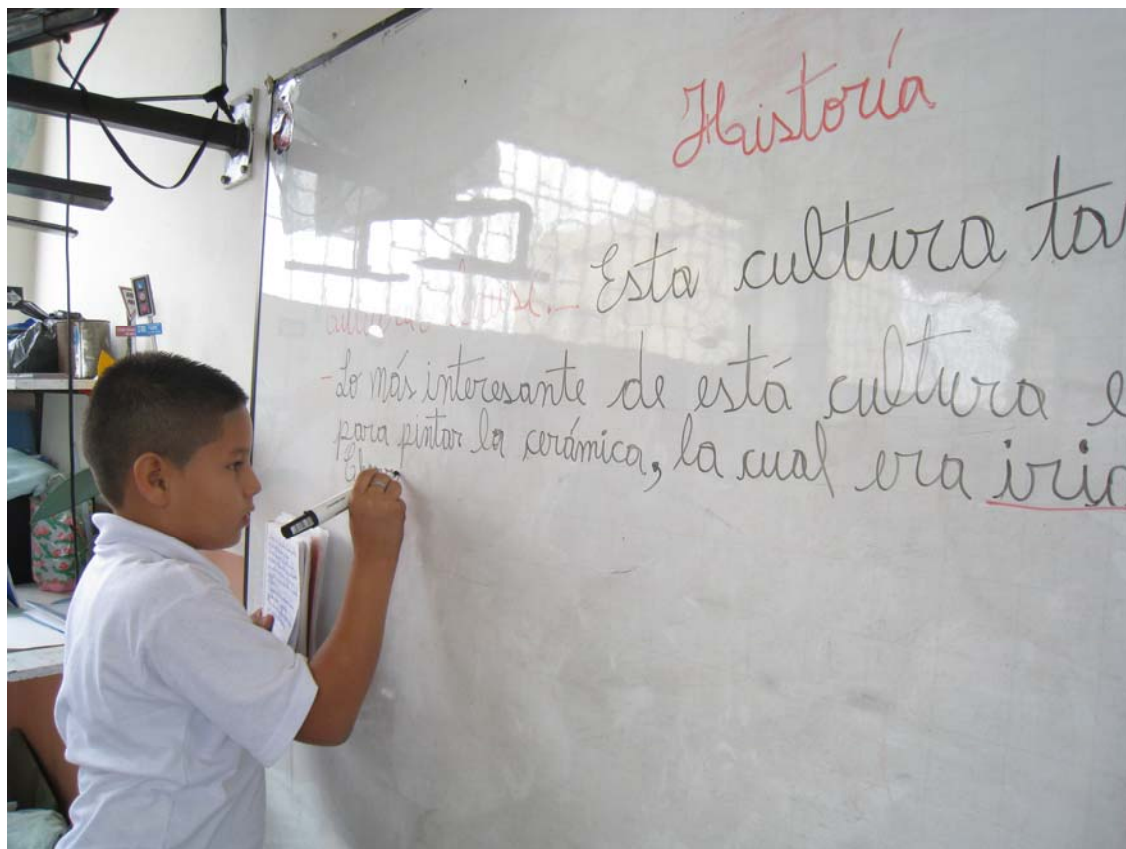 Historía
Esta cultura ta
- Lo más interesante de está cultura e
para pintar la cerámica, la cual era iric